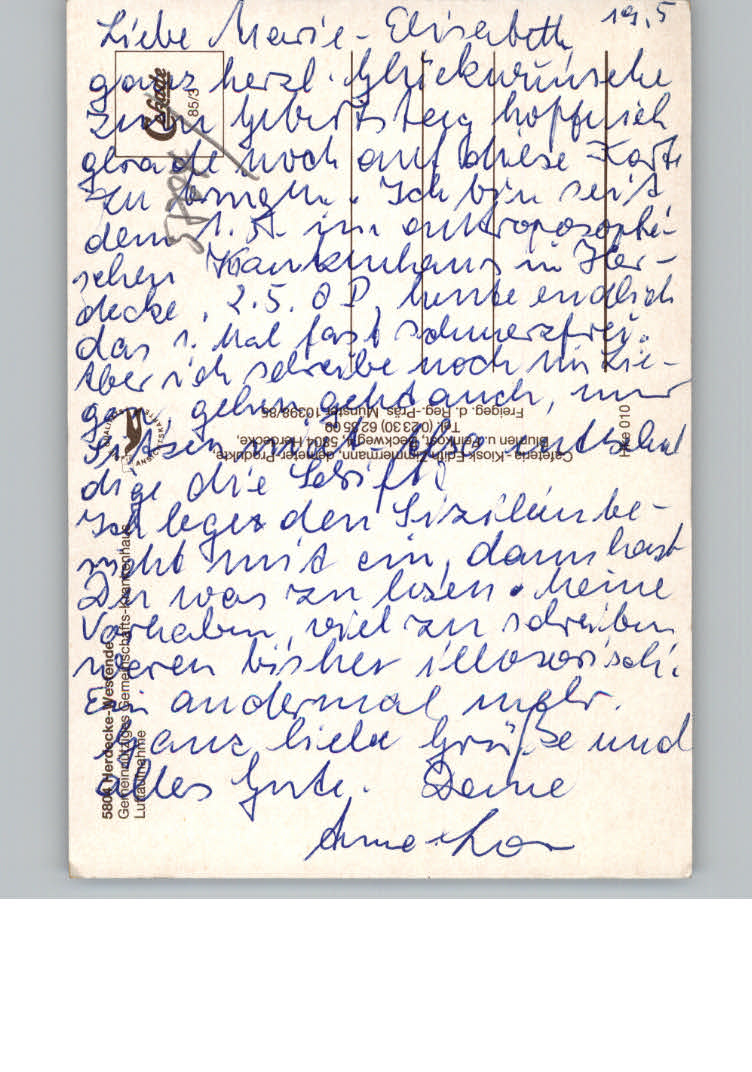 19.5
Liebe Marie-Elisabeth,
ganz herzl. Glückwünsche
zum Geburtstag hoffe ich
gerade noch auf diese Karte
zu bringen. Ich bin seit
dem 1. 5. im anthroposophi-
schen Krankenhaus in Her-
decke, 2.5. OP, heute endlich
das 1. Mal fast schmerzfrei.
Aber ich schreibe noch im Lie-
gen, gehen geht auch, nur
sitzen nicht, also entschul
dige die Schrift!
Ich lege den Sizilienbe-
richt mit ein, dann hast
Du was zu lesen. Meine
Vorhaben, viel zu schreiben
waren bisher illusorisch.
Ein andermal mehr.
Ganz liebe Grüße und
alles Gute. Deine
Anne-
Cekade
85/3
5804 Herdecke-Westende
Gemeinnütziges Gemeinschafts-Krankenhaus
Luftaufnahme
Cafeteria - Kiosk Edith Zimmermann, demeter-Produkte,
Blumen u. Feinkost, Beckweg 4, 5804 Herdecke,
Tel. (02330) 62 35 09
Freigeg. d. Reg.-Präs. Münster 10398/85
Hke 010